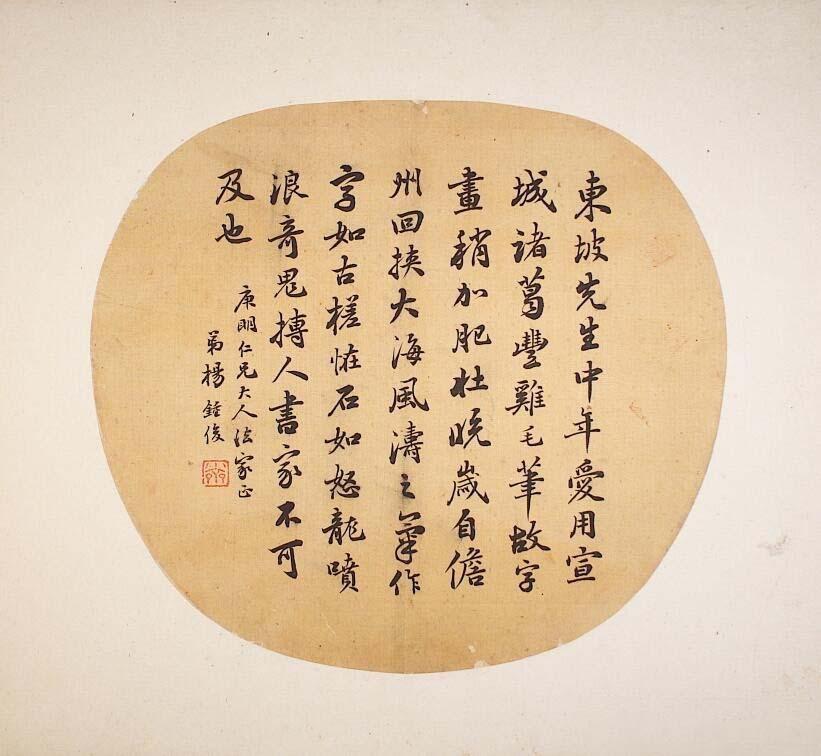 東坡先生中年愛用宣
城諸葛豐雞毛筆故字
畫稍加肥壯晚歲自儋
州回挾大海風濤之氣作
字如古槎怪石如怒龍噴
浪奇鬼搏人書家不可
及也
庚明仁兄大人法家正
弟楊鍾俊